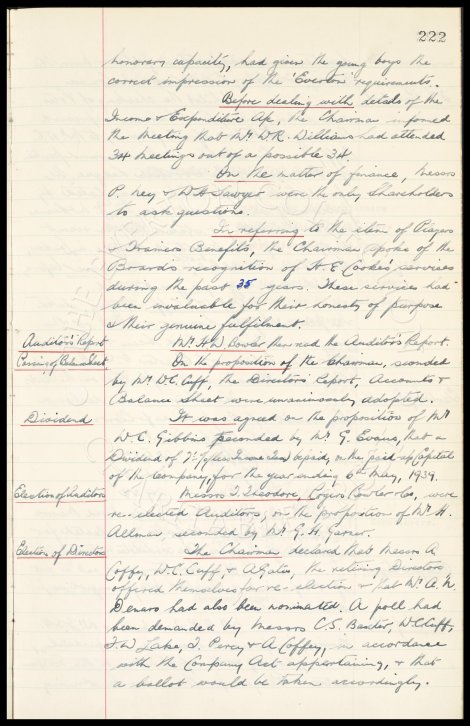 222
honorary capacity, had given the young boys the
correct impression of the 'Everton' requirements.
Before dealing with details of the
Income & Expenditure A/c, the Chairman informed
the Meeting that Mr W.R. Williams had attended
34 meetings out of a possible 34.
On the matter of finance, Messrs
P. Ney & W.H. Sawyer were the only Shareholders
to ask questions.
In referring to the item of Players
& Trainers Benefits, the Chairman spoke of the
Board's recognition of H. E. Cooke's services
during the past 35 years. These services had
been invaluable for their honesty of purpose
& their genuine fulfilment.
Auditor's Report
Mr H.W. Bowter then read the Auditor's Report.
Passing of Balance Sheet
On the proposition of the Chairman, seconded
by Mr W.C. Cuff, the Directors' Report, Accounts &
Balance Sheet were unanimously adopted.
Dividend
It was agreed on the proposition of Mr
W.C. Gibbins seconded by Mr G. Evans, that a
Dividend of 7½% (less Income Tax) be paid, on the paid-up Capital
of the Company, for the year ending 6th May, 1939.
Election of Auditors
Messrs T. Theodore, Rogers Bowter & Co., were
re-elected Auditors, on the proposition of Mr H.
Allman, seconded by Mr G. H. Garner.
Election of Directors
The Chairman declared that Messrs A.
Coffey, W.C. Cuff, & A. Gates, the retiring Directors
offered themselves for re-election & that Mr A. N.
Denaro had also been nominated. A poll had
been demanded by Messrs C.S. Baxter, W.C. Cuff,
F.W. Lake, J. Percy & A. Coffey, in accordance
with the Company Act appertaining, & that
a ballot would be taken accordingly.